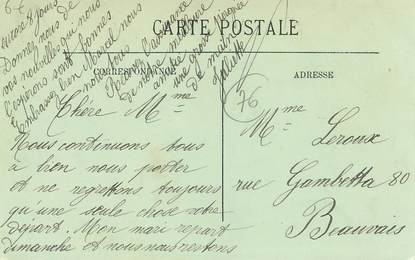 CARTE POSTALE
CORRESPONDANCE
ADRESSE
Chère Mme
Nous continuons tous
à bien nous porter
et ne regrettons toujours
qu'une seule chose votre
départ. Mon mari repart
dimanche et nous nous restons
6-7
8 jours
Donnez nous de
vos nouvelles de nous
l'espérons sont bonnes
Embrassez bien Marcel nous
nous tous
Recevez l'assurance
de notre meilleure
amitié
une grosse poignée
de main
Juliette
76
Mme Leroux
rue Gambetta 80
Beauvais